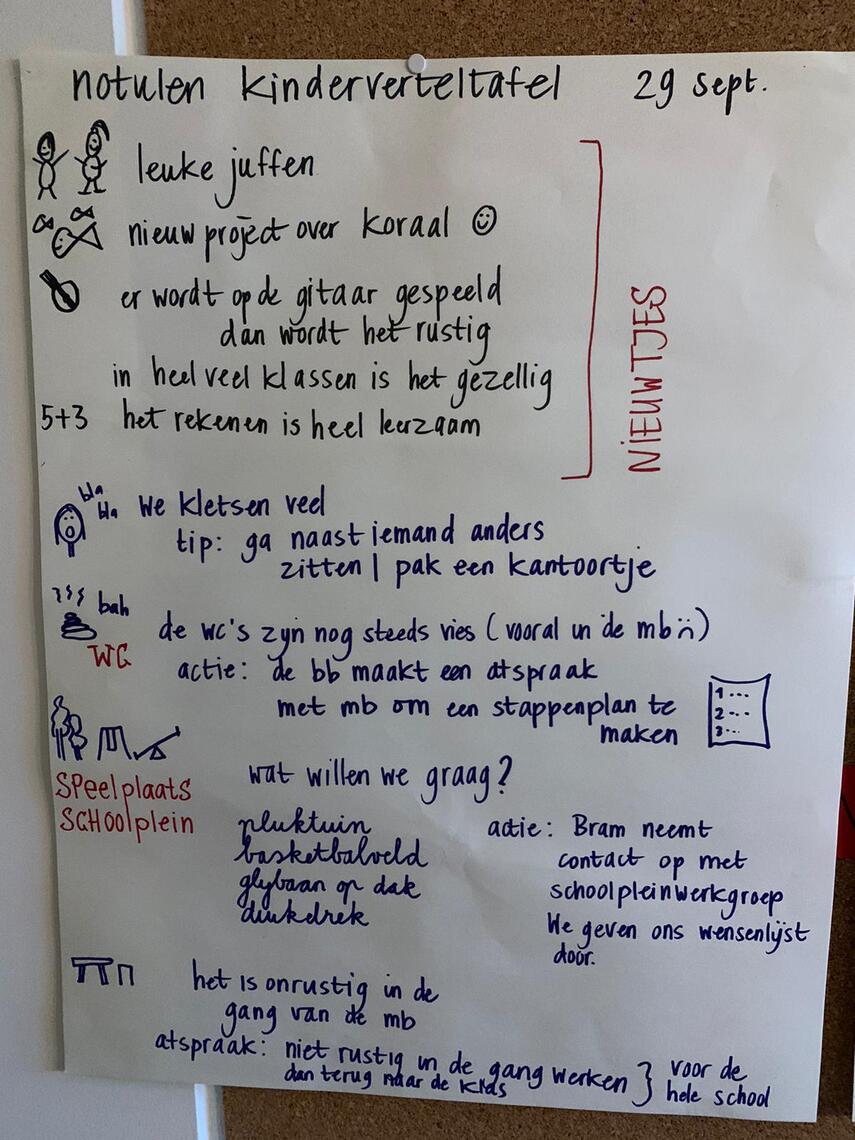 notulen kinderverteltafel 29 sept.
leuke juffen
nieuw project over koraal
er wordt op de gitaar gespeeld
dan wordt het rustig
in heel veel klassen is het gezellig
5+3 het rekenen is heel leerzaam
NIEUWTJES
bla
bla we kletsen veel
tip: ga naast iemand anders
zitten | pak een kantoortje
bah
de wc's zijn nog steeds vies (vooral in de mb ☹)
WC
actie: de bb maakt een afspraak
met mb om een stappenplan te
maken
1 ...
2 ...
3 ...
wat willen we graag?
SPeelplaats
SCHoolplein
pluktuin
basketbalveld
glijbaan op dak
actie: Bram neemt
contact op met
schoolpleinwerkgroep
We geven ons wensenlijst
door.
het is onrustig in de
gang van de mb
afspraak: niet rustig in de gang werken } voor de
dan terug naar de klas
hele school